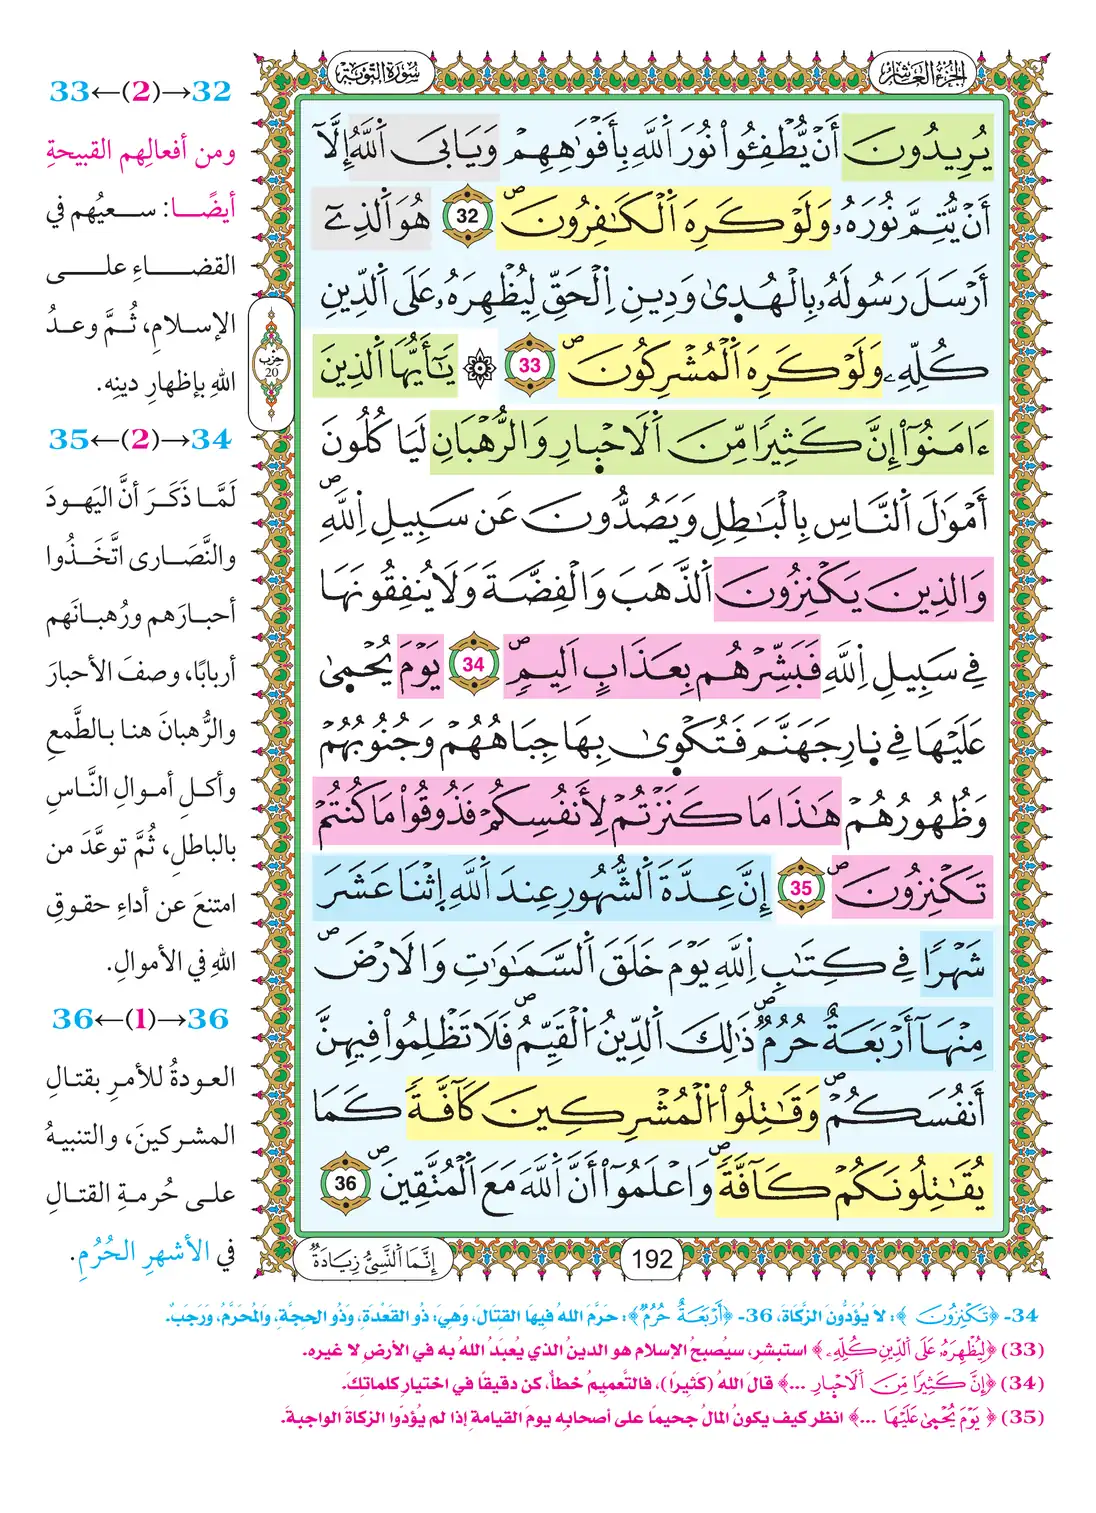 سُورَةُ التَّوْبَةِ
الجُزْءُ العَاشِرُ
يُرِيدُونَ أَنْ يُّطْفِـُٔواْ نُورَ اَ۬للَّهِ بِأَفْوَٰهِهِمْ وَيَابَى اَ۬للَّهُ إِلَّآ
أَنْ يُّتِمَّ نُورَهُۥ وَلَوْ كَرِهَ اَ۬لْكَٰفِرُونَۖ 32 هُوَ اَ۬لذِےٓ
أَرْسَلَ رَسُولَهُۥ بِالْهُد۪ىٰ وَدِينِ اِ۬لْحَقِّ لِيُظْهِرَهُۥ عَلَى اَ۬لدِّينِ
كُلِّهِۦ وَلَوْ كَرِهَ اَ۬لْمُشْرِكُونَۖ 33 ۞ يَٰٓأَيُّهَا اَ۬لذِينَ
ءَامَنُوٓاْ إِنَّ كَثِيرًا مِّنَ اَ۬لَاحْب۪ارِ وَالرُّهْبَانِ لَيَاكُلُونَ
أَمْوَٰلَ اَ۬لنَّاسِ بِالْبَٰطِلِ وَيَصُدُّونَ عَن سَبِيلِ اِ۬للَّهِۖ
وَالذِينَ يَكْنِزُونَ اَ۬لذَّهَبَ وَالْفِضَّةَ وَلَا يُنفِقُونَهَا
فِے سَبِيلِ اِ۬للَّهِ فَبَشِّرْهُم بِعَذَابٍ اَلِيمٍۖ 34 يَوْمَ يُحْم۪ىٰ
عَلَيْهَا فِے ن۪ارِ جَهَنَّمَ فَتُكْو۪ىٰ بِهَا جِبَاهُهُمْ وَجُنُوبُهُمْ
وَظُهُورُهُمْ هَٰذَا مَا كَنَزْتُمْ لِأَنفُسِكُمْ فَذُوقُواْ مَا كُنتُمْ
تَكْنِزُونَۖ 35 إِنَّ عِدَّةَ اَ۬لشُّهُورِ عِندَ اَ۬للَّهِ اِ۪ثْنَا عَشَرَ
شَهْرًا فِے كِتَٰبِ اِ۬للَّهِ يَوْمَ خَلَقَ اَ۬لسَّمَٰوَٰتِ وَالَارْضَۖ
مِنْهَآ أَرْبَعَةٌ حُرُمٌۖ ذَٰلِكَ اَ۬لدِّينُ اُ۬لْقَيِّمُۖ فَلَا تَظْلِمُواْ فِيهِنَّ
أَنفُسَكُمْۖ وَقَٰتِلُواْ اُ۬لْمُشْرِكِينَ كَآفَّةً كَمَا
يُقَٰتِلُونَكُمْ كَآفَّةًۖ وَاعْلَمُوٓاْ أَنَّ اَ۬للَّهَ مَعَ اَ۬لْمُتَّقِينَۖ 36
حزب
20
إِنَّمَا اَ۬لنَّسِيُّ زِيَادَةٌ
192
33←(2)→32
ومن أفعالِهم القبيحةِ
أيضًا: سعيُهم في
القضاءِ على
الإسلامِ، ثُمَّ وعدُ
اللهِ بإظهارِ دينِه.
35←(2)→34
لَمَّا ذَكَرَ أنَّ اليَهودَ
والنَّصَارى اتَّخَذُوا
أحبارَهم ورُهبانَهم
أربابًا، وصفَ الأحبارَ
والرُّهبانَ هنا بالطَّمعِ
وأكلِ أموالِ النَّاسِ
بالباطلِ، ثُمَّ توعَّدَ من
امتنعَ عن أداءِ حقوقِ
اللهِ في الأموالِ.
36←(1)→36
العودةُ للأمرِ بقتالِ
المشركينَ، والتنبيهُ
على حُرمةِ القتالِ
في الأشهرِ الحُرُمِ.
34- ﴿تَكْنِزُونَ﴾: لاَ يُؤَدُّونَ الزَّكَاةَ، 36- ﴿أَرْبَعَةٌ حُرُمٌ﴾: حَرَّمَ اللهُ فِيهَا القِتَالَ، وَهِيَ: ذُو القَعْدَةِ، وَذُو الحِجَّةِ، وَالمُحَرَّمُ، وَرَجَبٌ.
(33) ﴿لِيُظْهِرَهُۥ عَلَى اَ۬لدِّينِ كُلِّهِۦ﴾ استبشِر، سيُصبحُ الإسلام هو الدينُ الذي يُعبَدُ اللهُ به في الأرضِ لا غيره.
(34) ﴿إِنَّ كَثِيرًا مِّنَ اَ۬لَاحْب۪ارِ ...﴾ قالَ اللهُ (كَثِيرًا)، فالتَّعميمُ خطأٌ، كن دقيقًا في اختيارِ كلماتِكَ.
(35) ﴿يَوْمَ يُحْم۪ىٰ عَلَيْهَا ...﴾ انظر كيف يكونُ المالُ جحيمًا على أصحابِه يومَ القيامةِ إذا لم يُؤدّوا الزكاةَ الواجبةَ.